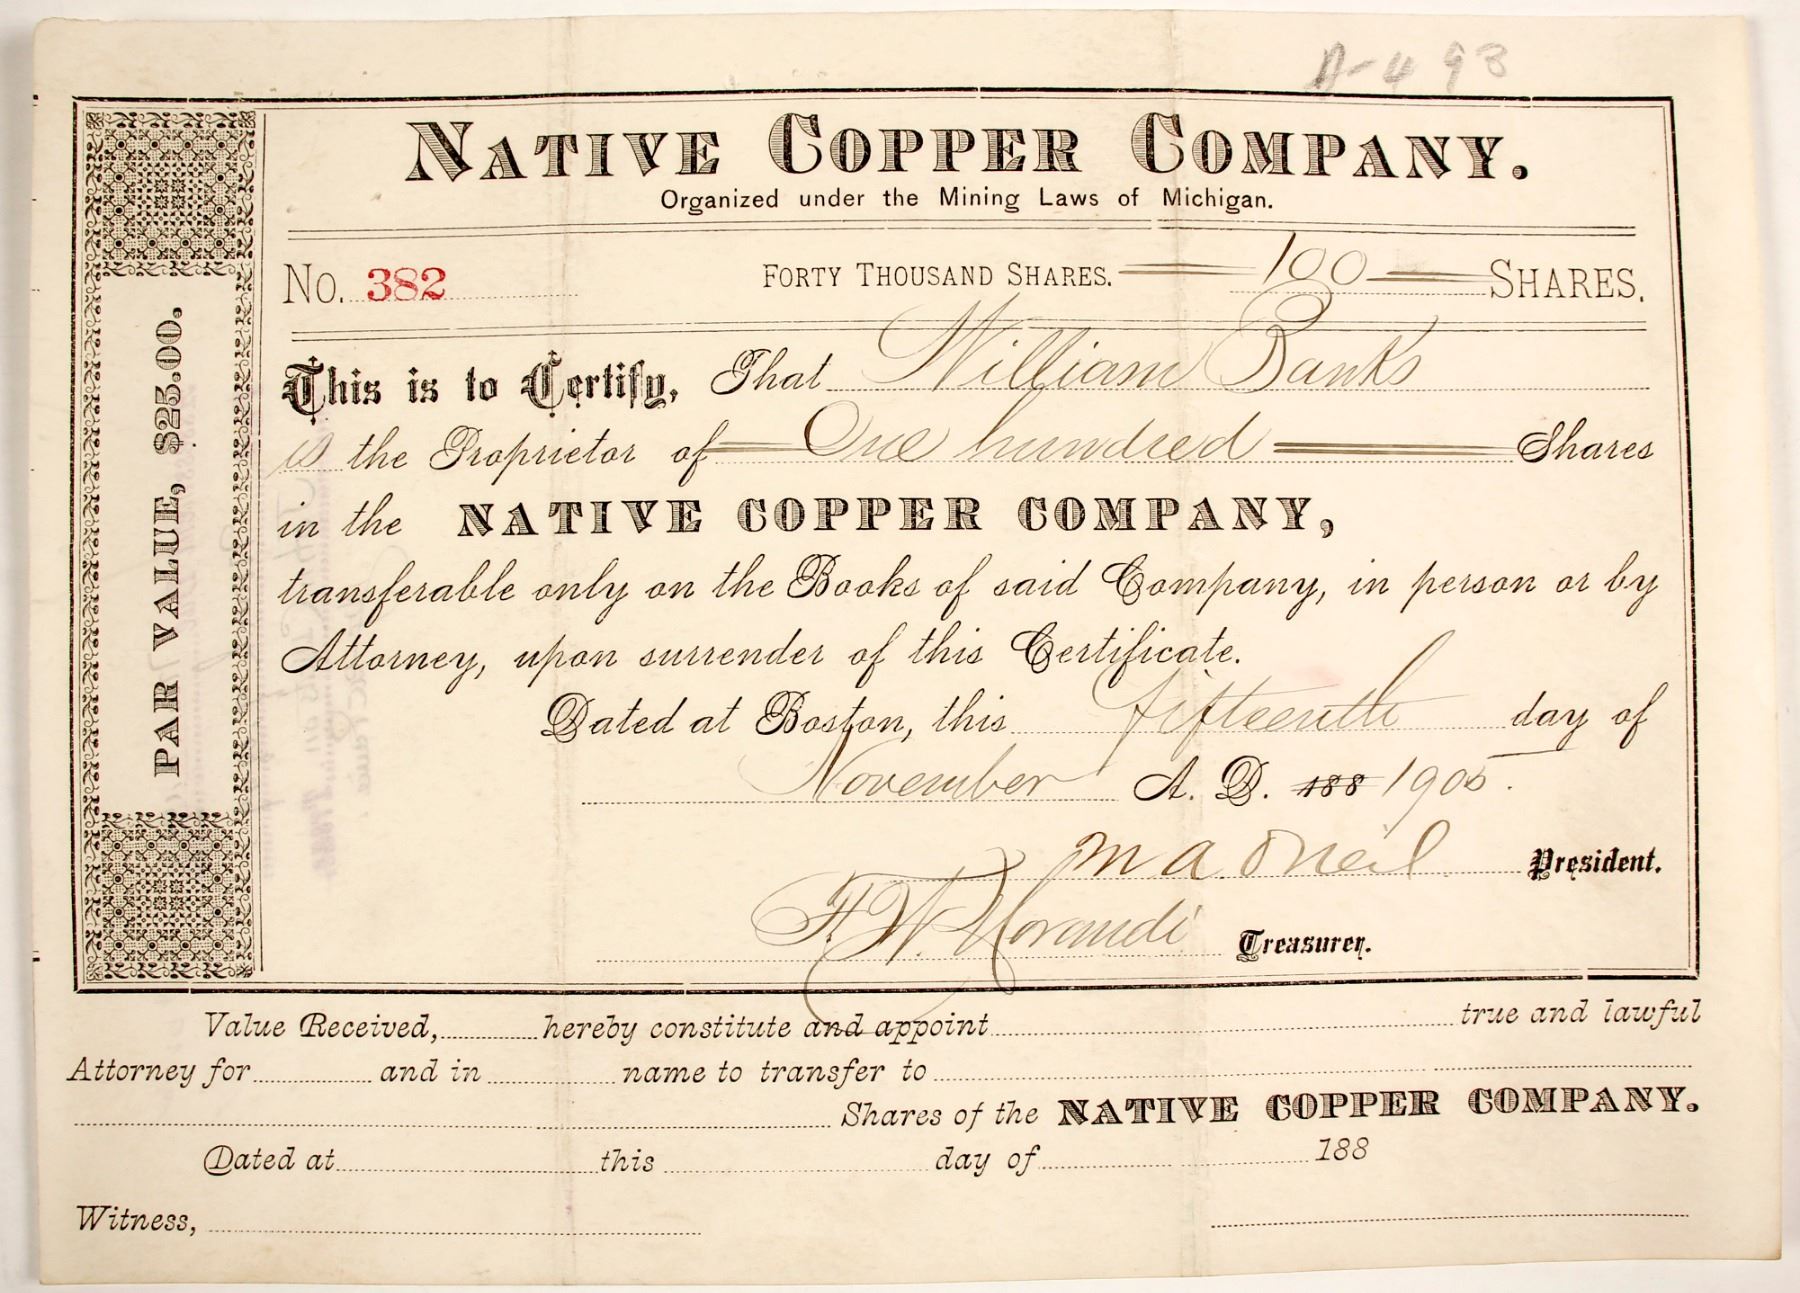 A-493
NATIVE COPPER COMPANY.
Organized under the Mining Laws of Michigan.
No. 382 FORTY THOUSAND SHARES. 100 SHARES.
This is to Certify, That William Banks
is the Proprietor of One hundred Shares
in the NATIVE COPPER COMPANY,
transferable only on the Books of said Company, in person or by
Attorney, upon surrender of this Certificate.
Dated at Boston, this fifteenth day of
November A. D. 188 1905.
M A O'Neil President.
F. W. Morandi Treasurer.
PAR VALUE, $25.00.
Value Received, hereby constitute and appoint true and lawful
Attorney for and in name to transfer to
Shares of the NATIVE COPPER COMPANY.
Dated at this day of 188
Witness,